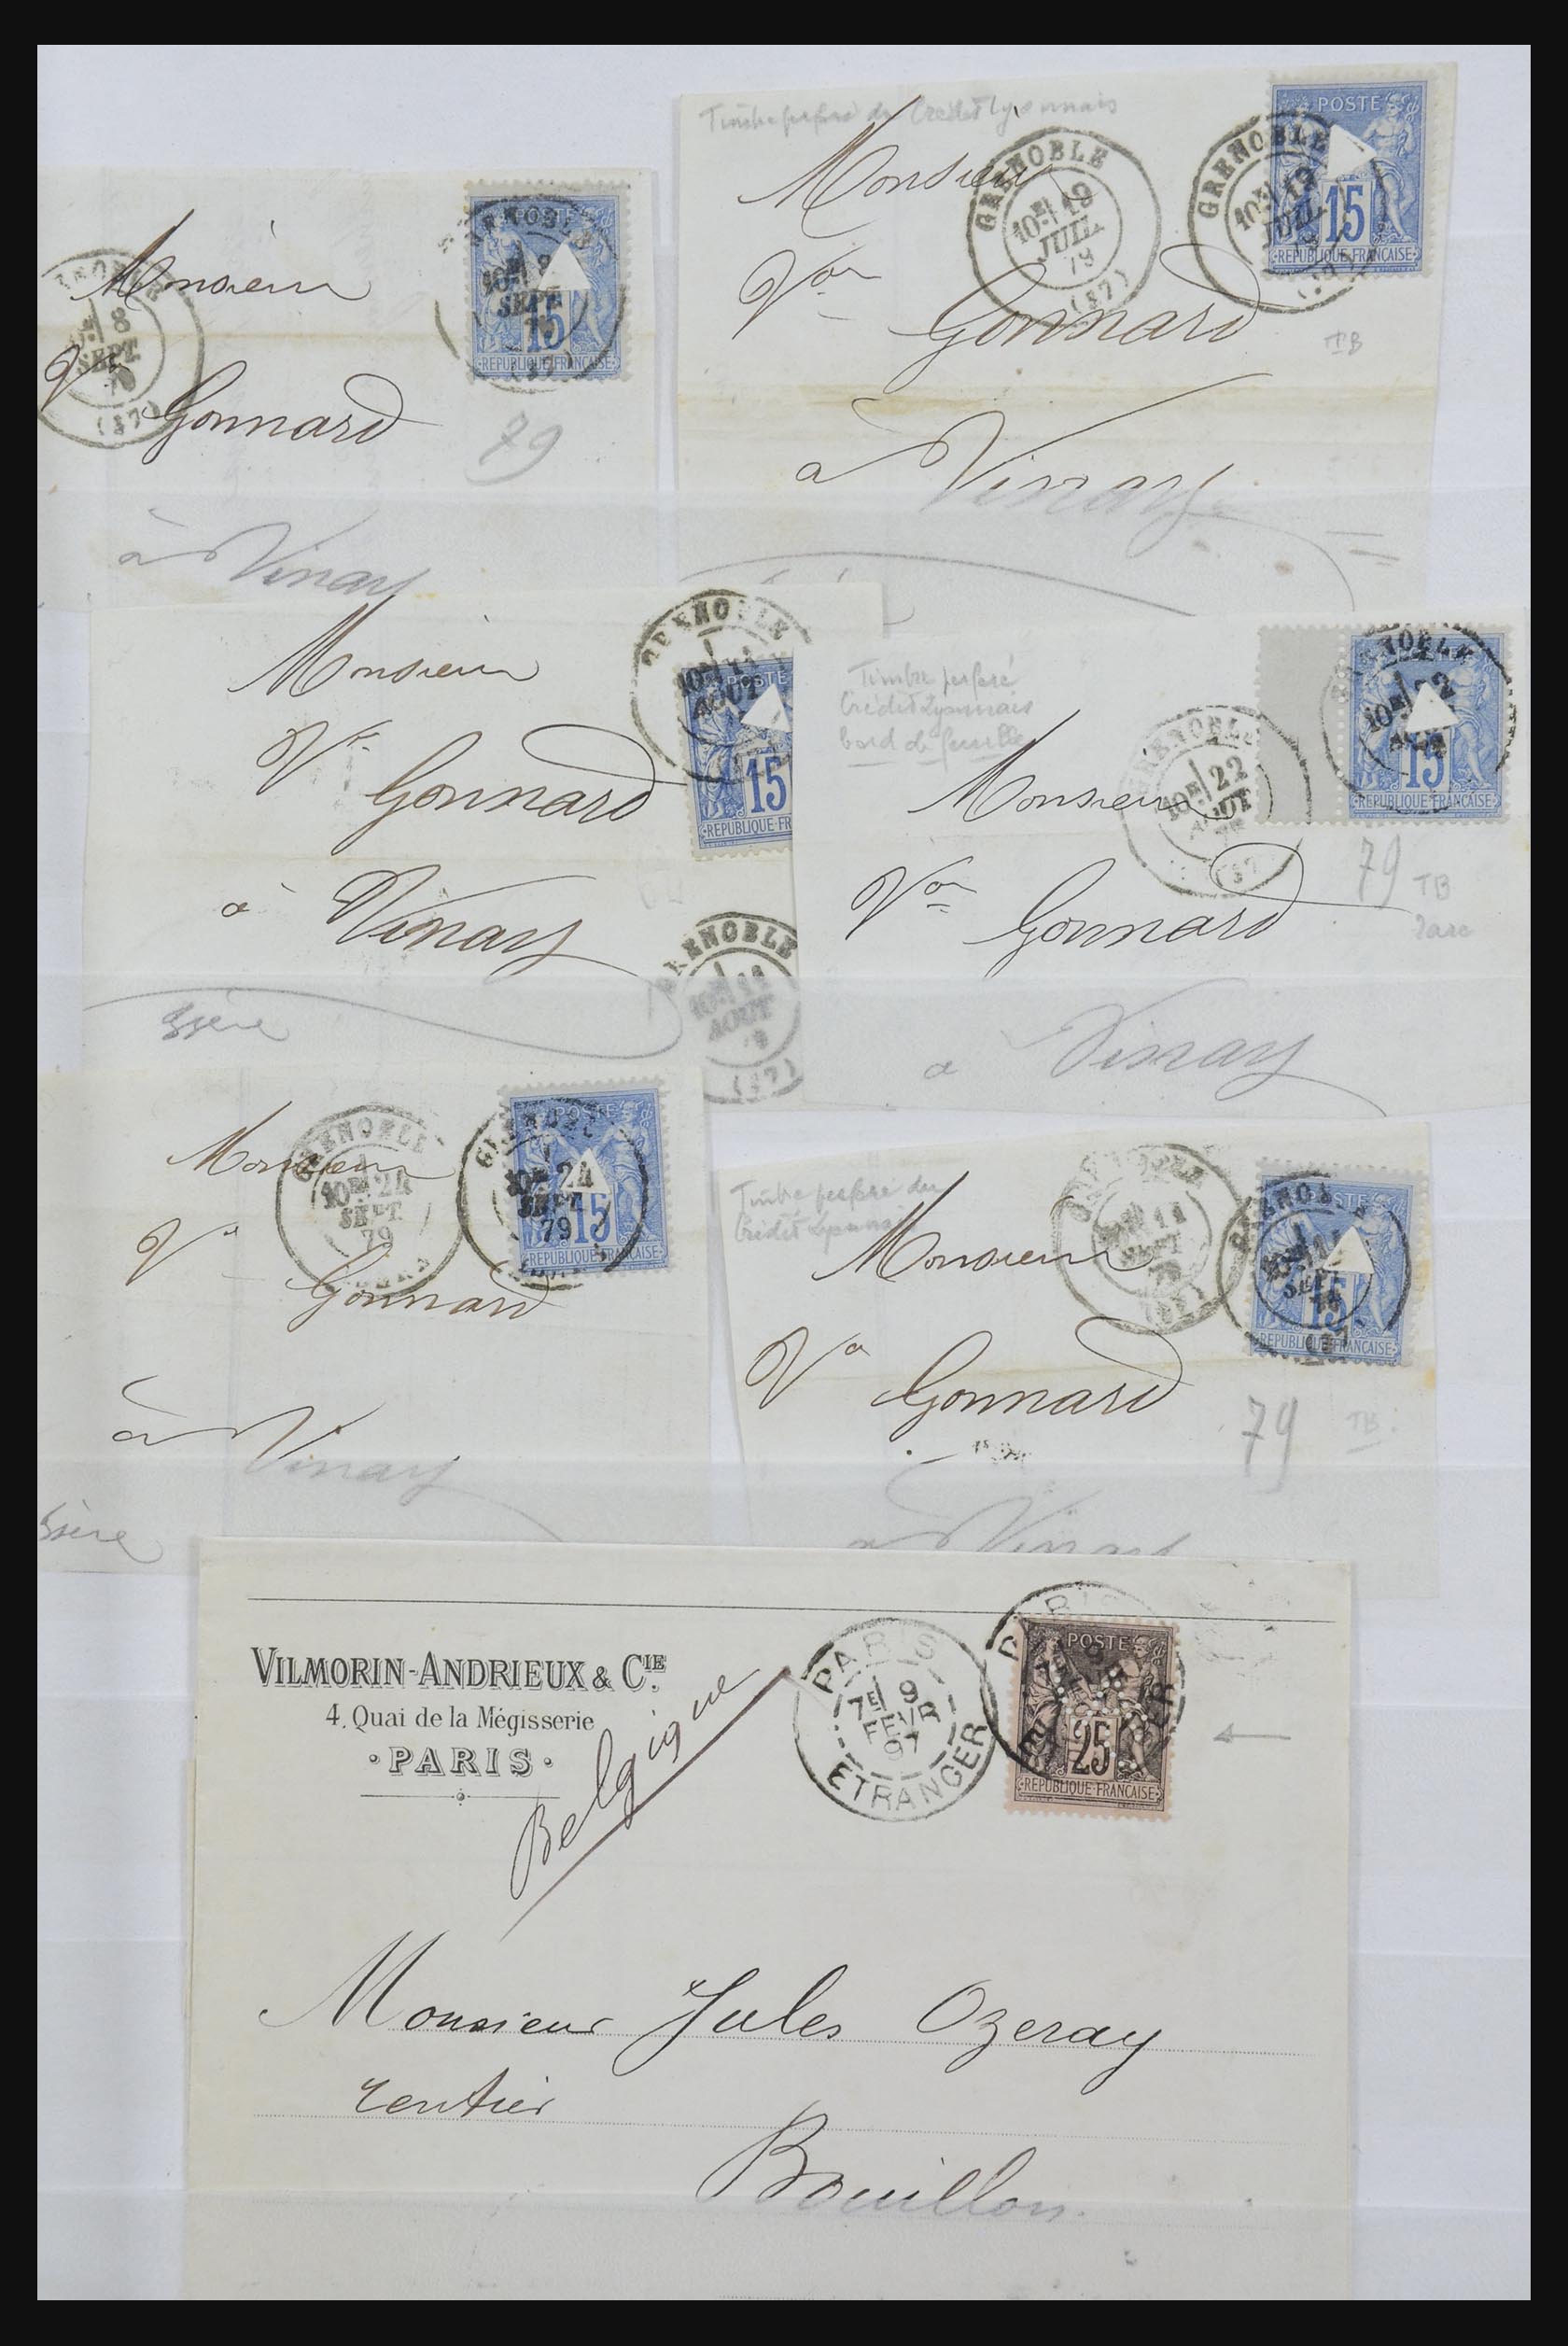 Monsieur
Gonnard
à Vinay
79
GRENOBLE
8
SEPT.
(37)
POSTE
15
REPUBLIQUE FRANCAISE
Timbre perforé du Crédit Lyonnais
Monsieur
Von
Gonnard
à Vinay
TB
GRENOBLE
10E 19
JUIL.
79
(37)
GRENOBLE
10E 19
JUIL.
POSTE
15
REPUBLIQUE FRANCAISE
Monsieur
Gonnard
à Vinay
Isère
GRENOBLE
AOUT
POSTE
15
REPUBLIQUE FR
GRENOBLE
11
AOUT
(37)
Timbre perforé
Crédit Lyonnais
bord de feuille
Monsieur
Von
Gonnard
a Vinay
79
TB
GRENOBLE
10E 22
AOUT
15
REPUBLIQUE FRANCAISE
Monsieur
Gonnard
à Vinay
Isère
GRENOBLE
10E 24
SEPT.
79
GRENOBLE
24
SEPT.
79
POSTE
15
REPUBLIQUE FRANCAISE
Timbre perforé du
Crédit Lyonnais
Monsieur
Gonnard
a Vinay
79
TB
11
SEPT
GRENOBLE
SEPT
POSTE
15
REPUBLIQUE FRANCAISE
VILMORIN-ANDRIEUX & CIE.
4, Quai de la Mégisserie
PARIS
Belgique
PARIS
7E 9R
FEVR
97
ETRANGER
PARIS
POSTE
25
REPUBLIQUE FRANCAISE
Monsieur Jules Ozeray
rentier
Bouillon.